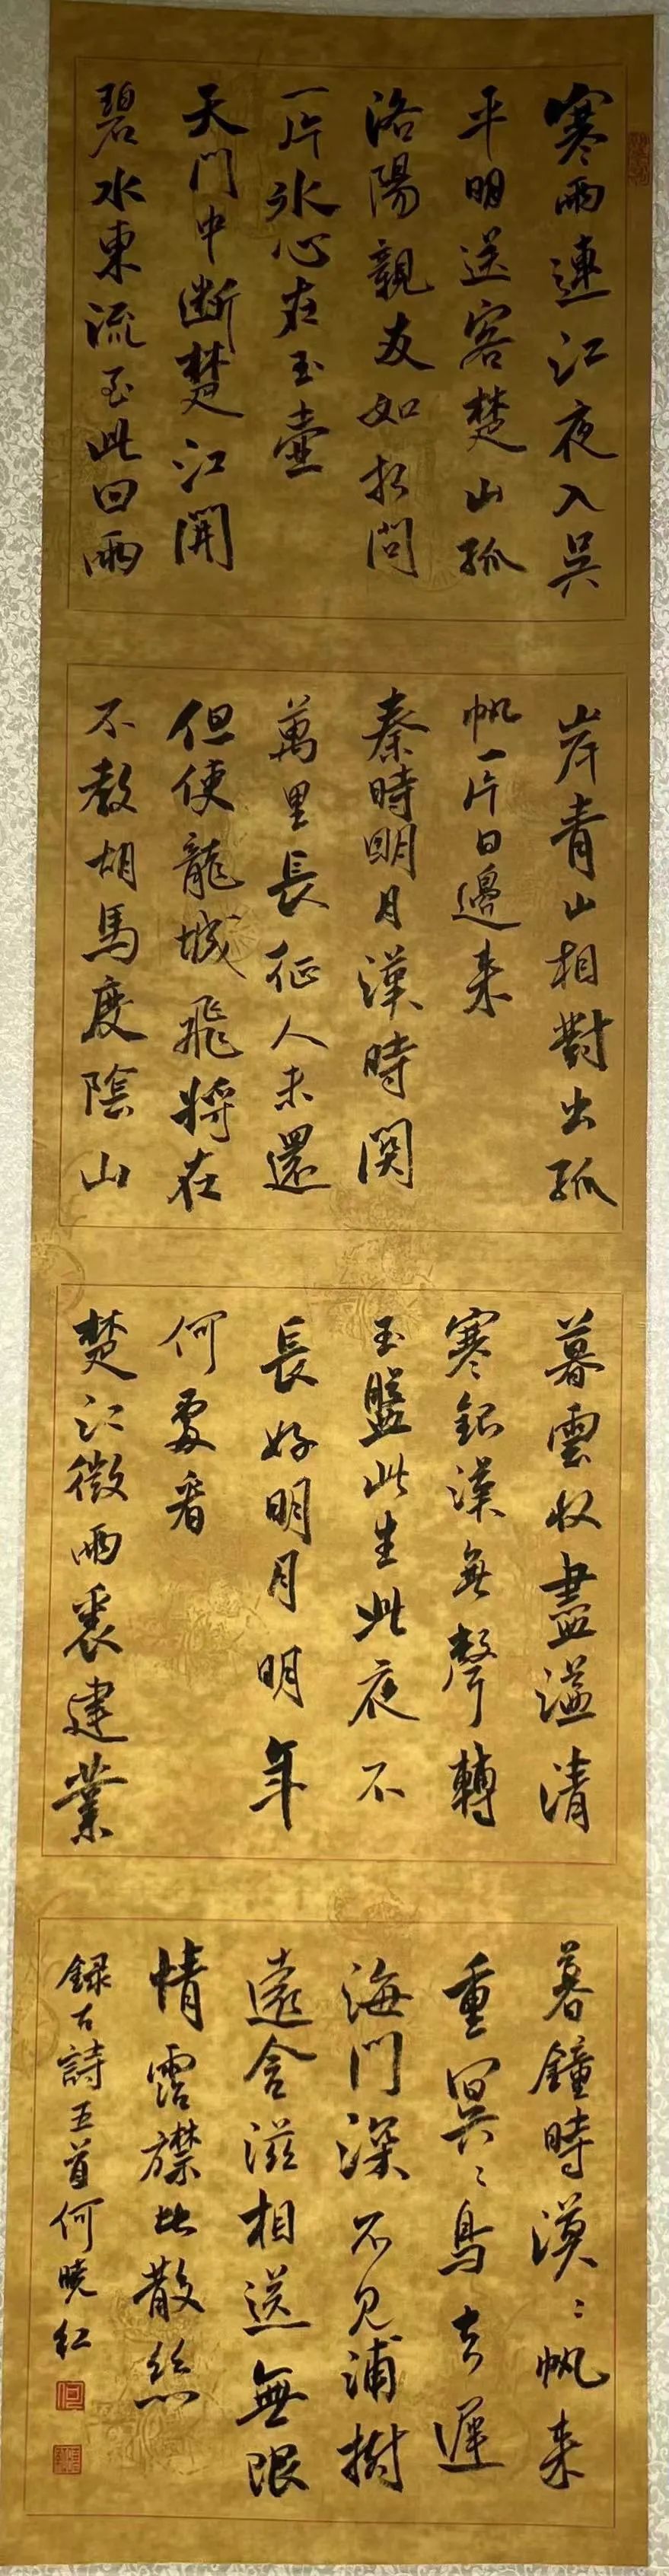 寒雨連江夜入吳
平明送客楚山孤
洛陽親友如相問
一片冰心在玉壺
天門中斷楚江開
碧水東流至此回兩
岸青山相對出孤
帆一片日邊来
秦時明月漢時関
萬里長征人未還
但使龍城飛將在
不教胡馬度陰山
暮雲收盡溢清
寒銀漢無聲轉
玉盤此生此夜不
長好明月明年
何處看
楚江微雨裏建業
暮鐘時漠〻帆来
重冥〻鳥去遲
海門深不見浦樹
遠含滋相送無限
情霑襟比散絲
録古詩五首何曉紅